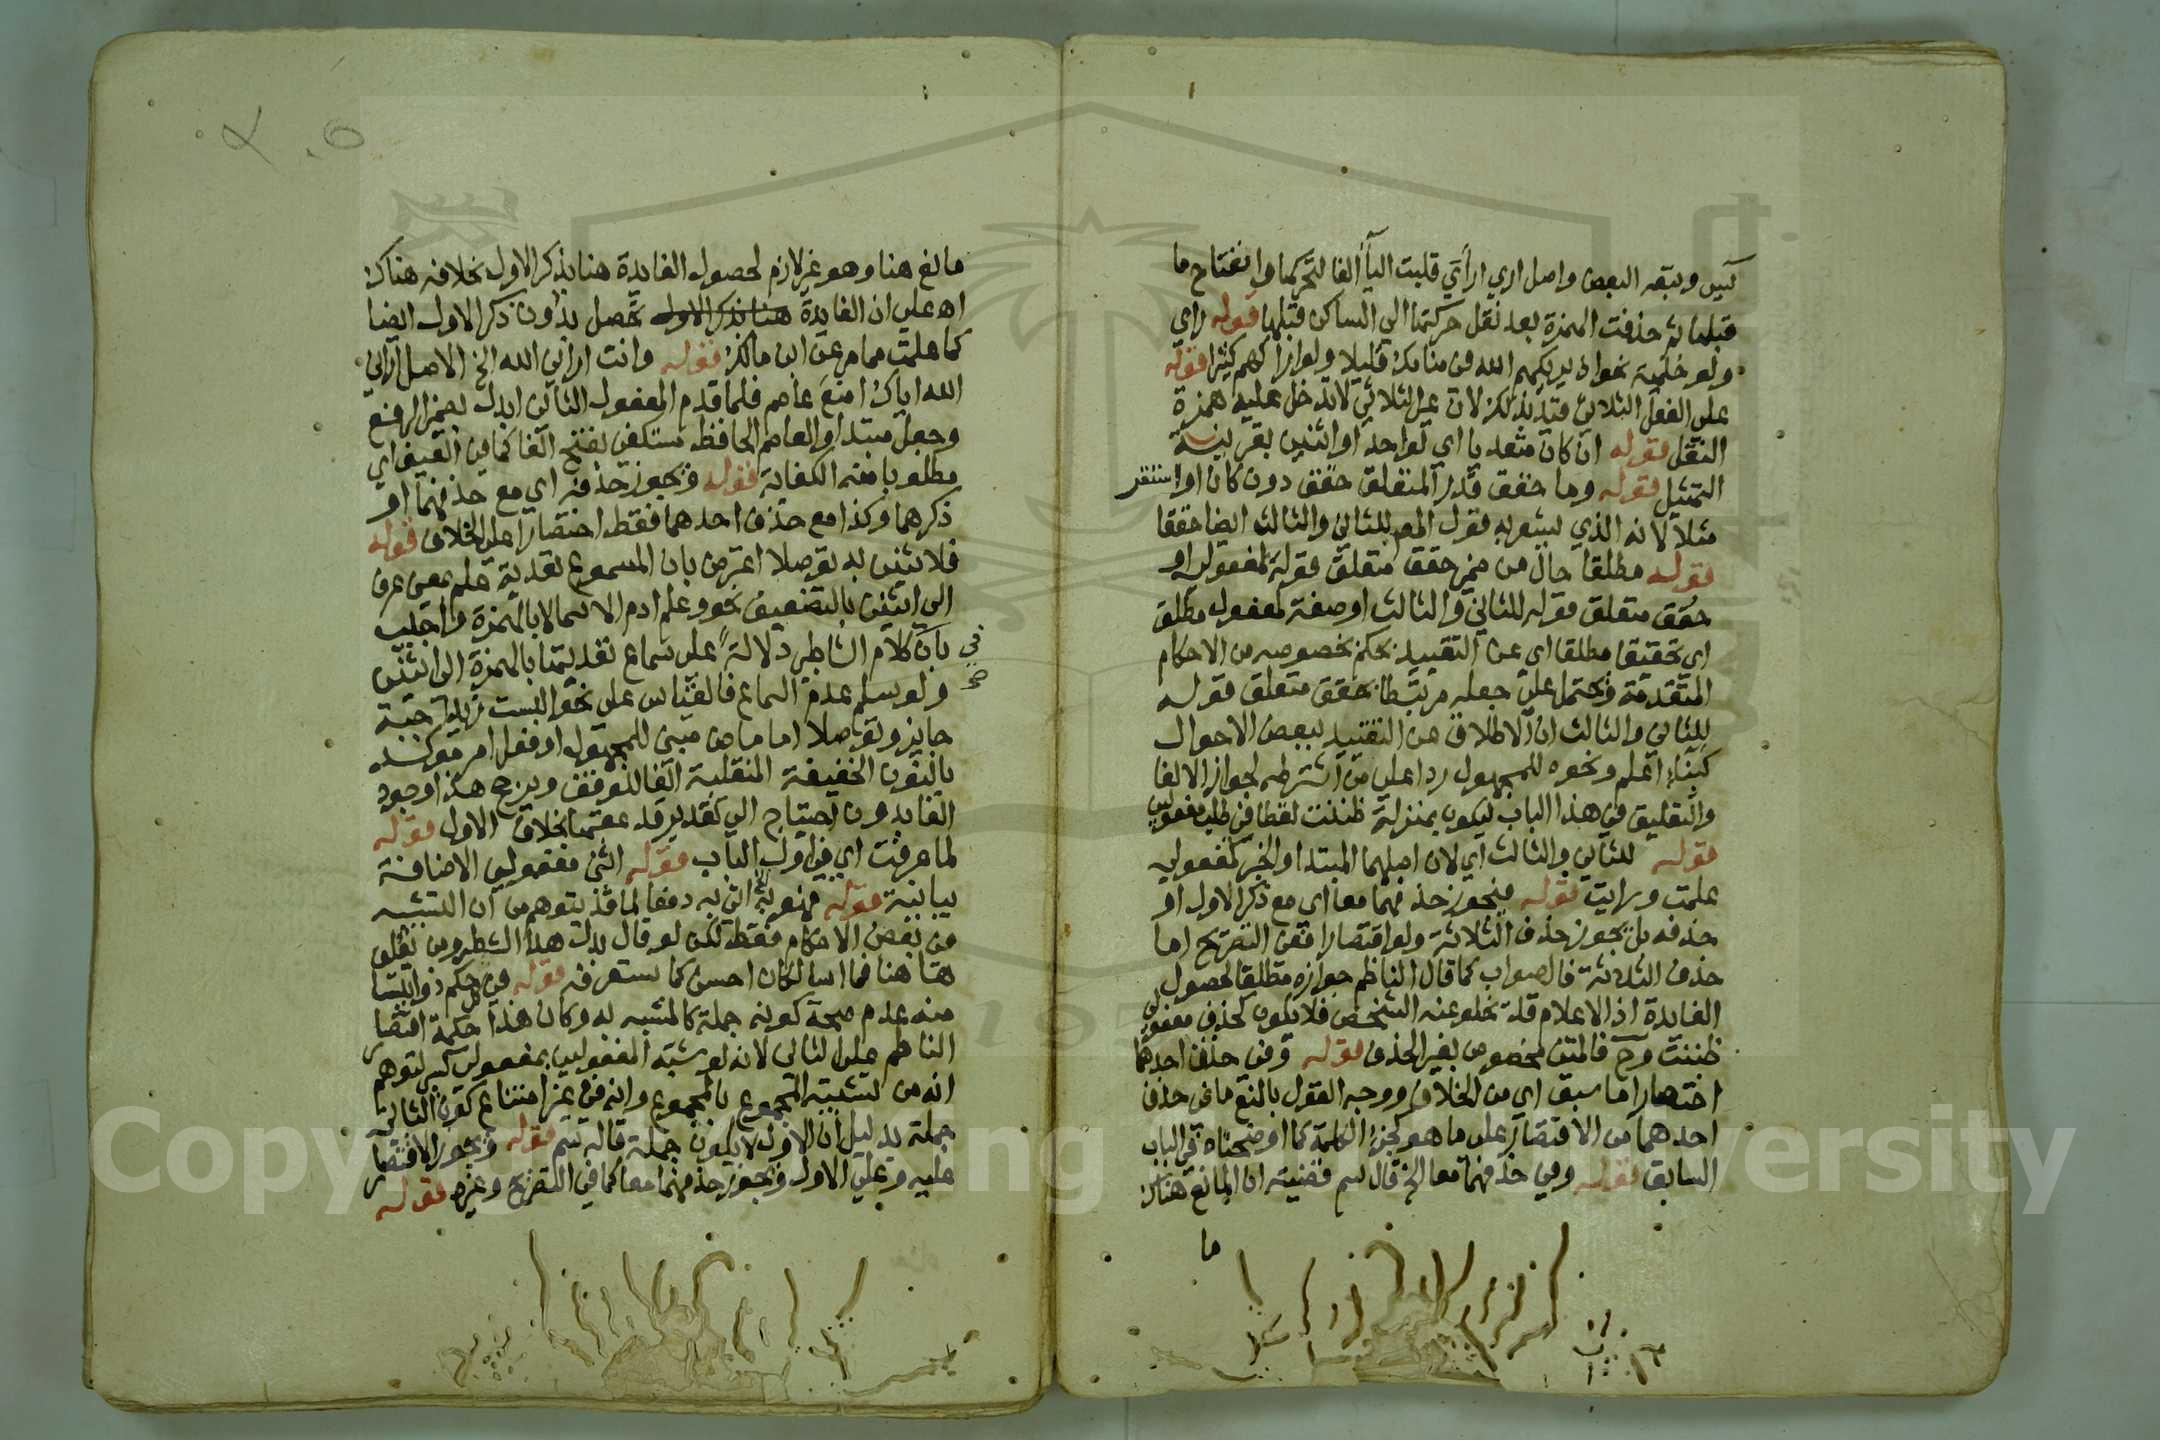 كبير وتبعه البعض واصل اري ارأي قلبت اليآ الفا لتحركها وانفتاح ما
قبلها ثم حذفت الهمزة بعد نقل حركتها الى الساكن قبلها قوله رأى
ولو حلمية نحو اذ يريكهم الله في منامك قليلا ولو اراكهم كثيرا قوله
على الفعل الثلاثي قيد بذلك لان غير الثلاثي لا تدخل عليه همزة
النقل قوله ان كان متعديا اي لواحد او اثنين بقرينة
التمثيل قوله وما حقق قدر المتعلق حقق دون كان او استقر
مثلا لانه الذي يشعر به قول المص للثاني والثالث ايضا حققا
قوله مطلقا حال من ضمير حقق متعلق قوله لمفعولي او
حقق متعلق قوله للثاني والثالث او صفة لمفعول مطلق
اي تحقيقا مطلقا اي عن التقييد بحكم بخصوصه من الاحكام
المتقدمة ويحتمل على جعله مرتبطا بحقق متعلق قوله
للثاني والثالث ان الاطلاق عن التقييد ببعض الاحوال
كبناء اعلم ونحوه للمجهول ردا على من اشترطه لجواز الالغا
والتعليق في هذا الباب ليكون بمنزلة ظننت لفظا في طلب مفعولين
قوله للثاني والثالث اي لان اصلهما المبتدا والخبر كمفعولي
علمت ورايت قوله فيجوز حذفهما معا اي مع ذكر الاول او
حذفه بل يجوز حذف الثلاثة ولو اقتصارا ففي التصريح اما
حذف الثلاثة فالصواب كما قال الناظم جوازه مطلقا لحصول
الفايدة اذ الاعلام قد يخلو عنه الشخص فلا يكون كحذف مفعولي
ظننت وح فالمتن مخصوص بغير الحذف قوله وفي حذف احدهما
اختصارا ما سبق اي من الخلاف ووجه القول بالمنع ما في حذف
احدهما من الاقتصار على ما هو كجزء الكلمة كما اوضحناه في الباب
السابق قوله وفي حذفهما معا الخ قال سم قضيته ان المانع هناك
ما
مانع هنا وهو غير لازم لحصول الفايدة هنا بذكر الاول بخلافه هناك
اه على ان الفايدة تحصل بدون ذكر الاول ايضا
كما علمت مما مر عن ابن مالك قوله وانت اراني الله الخ الاصل اراني
الله اياك امنع عاصم فلما قدم المفعول الثاني ابدل بضمير الرفع
وجعل مبتدا والعاصم الحافظ مستكفى بفتح الفا كما في اي
مطلوبا منه الكفاية قوله ويجوز حذفه اي مع حذفهما او
ذكرهما وكذا مع حذف احدهما فقط اختصارا على الخلاف قوله
فلاثنين به توصلا اعترض بان المسموع تعدية علم بمعنى عرف
الى اثنين بالتضعيف نحو وعلم ادم الاسما لا بالهمزة واجيب
بان كلام الشاطر دلالة على سماع تعديتها بالهمزة الى اثنين
في
صح
ولو سلم عدم السماع فالقياس على نحو البست زيدا جبة
جايز وتوصلا اما ماض مبني للمجهول او فعل امر موكد
بالنون الخفيفة المنقلبة الفا للوقف ويرجح هذا وجود
الفا بدون احتياج الى تقدير قد عقبها بخلاف الاول قوله
لما عرفت اي في اول الباب قوله اثنى مفعولي الاضافة
بيانية قوله فهو به الخ اتى به دفعا لما قد يتوهم من ان التشبيه
في بعض الاحكام فقط لكن لو قال بدل هذا الشطر ومن تعلق
هنا هنا فما اسا لكان احسن كما ستعرفه قوله في كل حكم ذو ائتسا
منه عدم صحة كونه جملة كالمشبه له وكان هذا حكمة اقتصار
الناظم على الثاني لانه لو شبه المفعولين بمفعولي كسى لتوهم
انه من تشبيه المجموع بالمجموع وانه في غير امتناع كون الثاني
جملة بدليل ان الاول لا يكون جملة قاله سم قوله ويجوز الاقتصار
عليه وعلى الاول ويجوز حذفهما معا كما في التصريح وغيره قوله